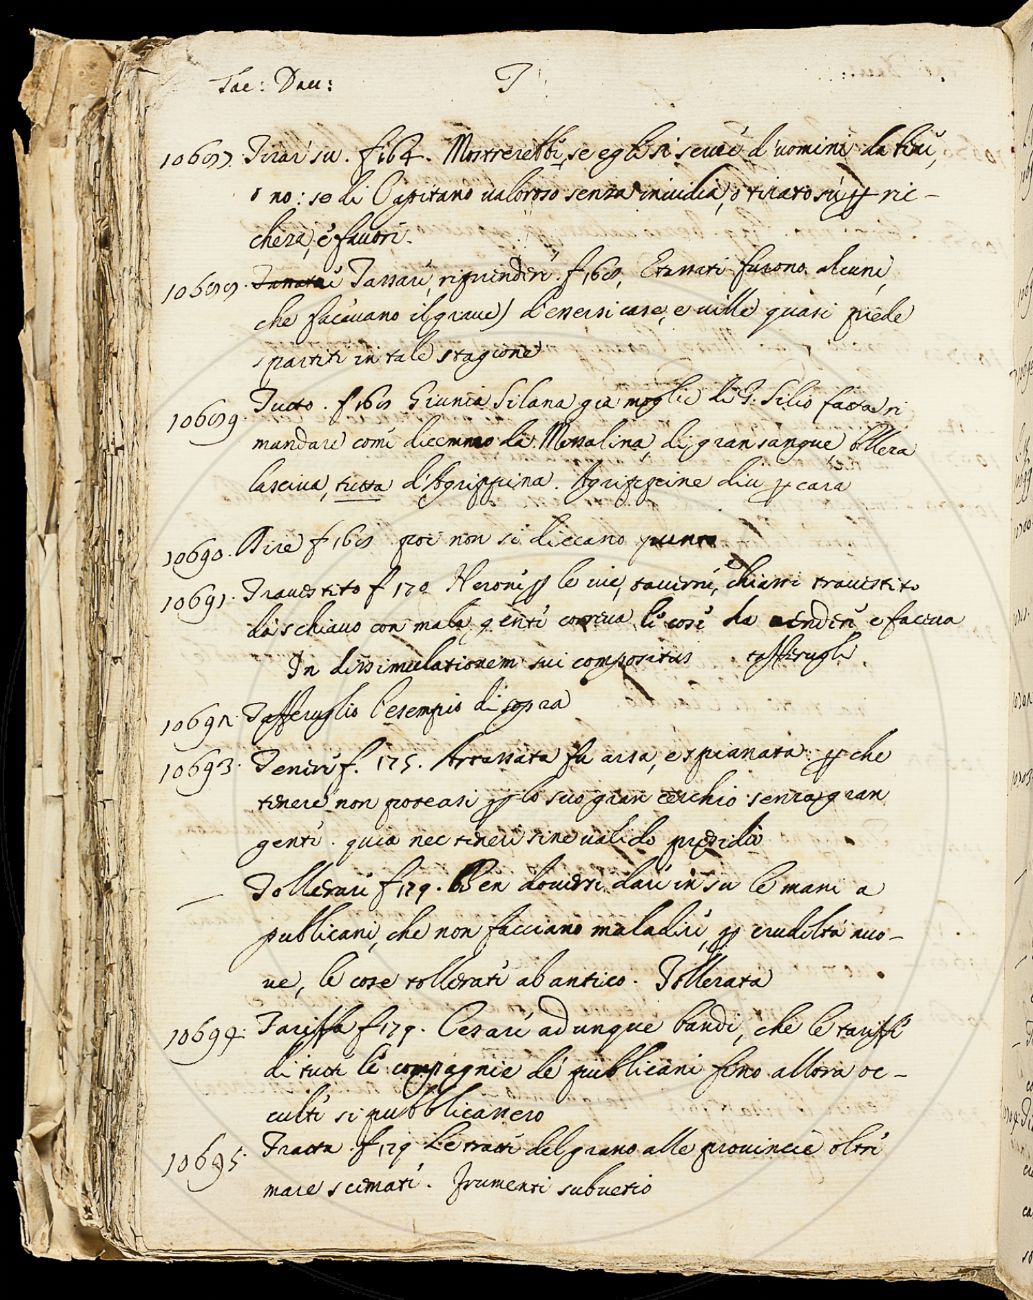 Tac: Dau: T
10687. Tirar su. f 164. Mostrerebbe, se egli si serve d'uomini da bene,
o no: se di Capitano valoroso senza invidia, o tirato su ꝑ ric-
cheza, e favori.
10688. Tassare, riprendere, f 168, E tassati furono alcuni,
che facevano il grave) d'essersi case, e ville quasi prede
spartiti in tale stagione
10689. Tutto. f 168 Giunia Silana già moglie di G. Silio fatta ri
mandare come dicemmo da Messalina, di gran sangue, bella
lasciva, tutta d'Agrippina. Agrippine diu ꝑ cara
10690. Tire f 168 poi non si diccano punto
10691. Travestito f 170 Nerone ꝑ le vie, taverne, chiassi travestito
da schiavo con mala gente correva le cose da vendere e faceva
In dissimulationem sui compositus tafferugli
10692. Tafferuglio l'esempio di sopra
10693. Tenere f. 175. Artassata fu arsa, e spianata: ꝑ che
tenere non poteasi ꝑ lo suo gran cerchio senza gran
gente. quia nec teneri sine valido presidio
— Tollerare f 179. Ben doversi dare in su le mani a
publicani, che non facciano maladire, ꝑ crudeltà nuo-
ve, le cose tollerate ab antico. Tollerata
10694. Tariffa f 179. Cesare adunque bandì, che le tariffe
di tutte le compagnie de' pubblicani fino allora oc-
culte si pubblicassero
10695. Tratta. f 179 Le tratte del grano alle provincie oltre
mare scemate. frumenti subvectio